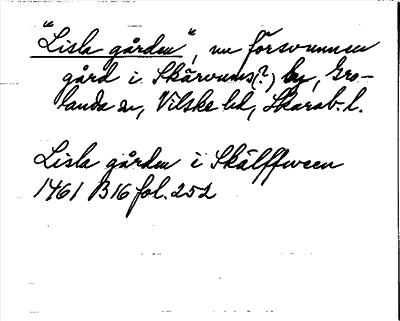 "Lisla gården", nu försvunnen
gård i Skärvums(?) by, Gro-
landa sn, Vilske hd, Skarab. l.
Lisla gården i Skälffween
1461 B16 fol. 252